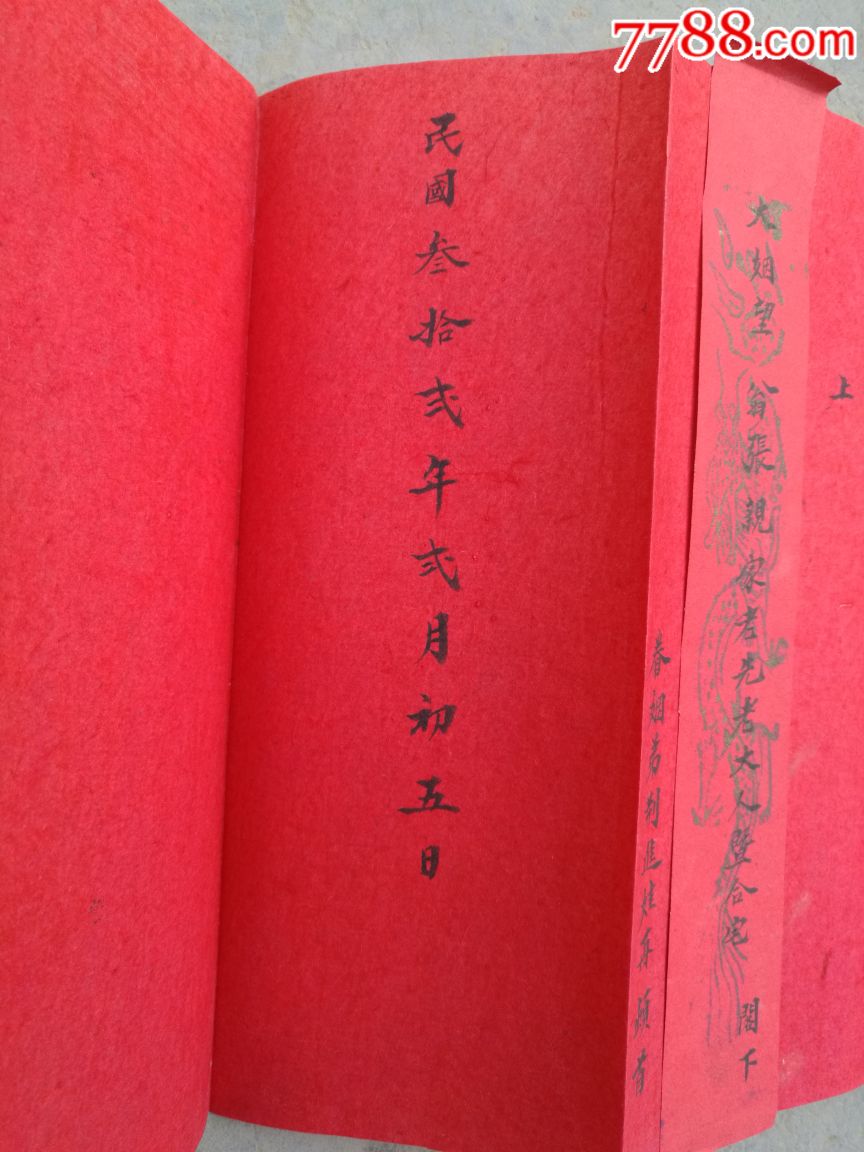 7788.com
上
大姻望 翁張親家老先生大人暨合宅 閣下
眷姻弟
頓首
民國叁拾弍年弍月初五日